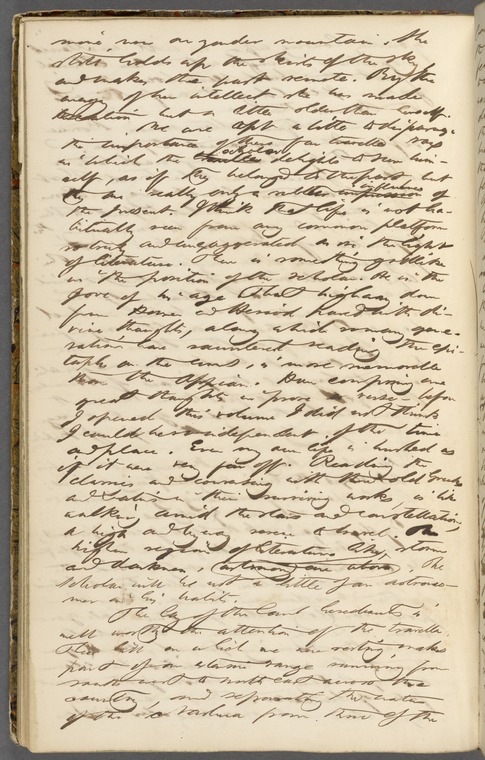 more, now on yonder mountain. She
still holds up the skirts of the sky
and makes the past remote. By the
energy of her intellect she has made
but a little older than herself.
We are apt a little to disparage
the importance of these few travelled ways
in which the scholar delights to
self, as if they belonged to the past, but
they are really only a
the present. I think that life is not ha-
bitually seen from any common platform
so truly and unexaggerated as in the light
of literature. There is something godlike
in the position of the scholar. He is the
Jove of his age. That highway down
from Homer and Hesiod paved with di-
vine thoughts, along which so many gene-
rations have sauntered reading the epi-
taphs on the tombs, is more memorable
than the Appian. How composing are
great thoughts in prose or verse — before
I opened this volume I did not think
I could be so independent of the time
and place. Even my own life is hushed as
if it were very far off. Reading the
classics and conversing with those old Greeks
and Latins in their surviving works, is like
walking amid the stars and constellations,
a high and by way serene to travel. The
higher regions of literature, like, storms
and darkness, astronomy are above. The
scholar will be not a little of an astrono-
mer in his habits.
The
well worth the attention of the traveller.
This hill on which we are resting makes
part of an range running from
south west to north east across the
country, and separating the waters
of the Nashua from those of the